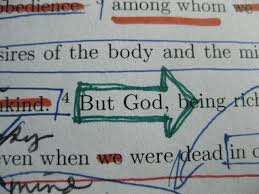 bedience among whom we
sires of the body and the mi
nkind. 4 But God, being rich
even when we were dead in o
mine